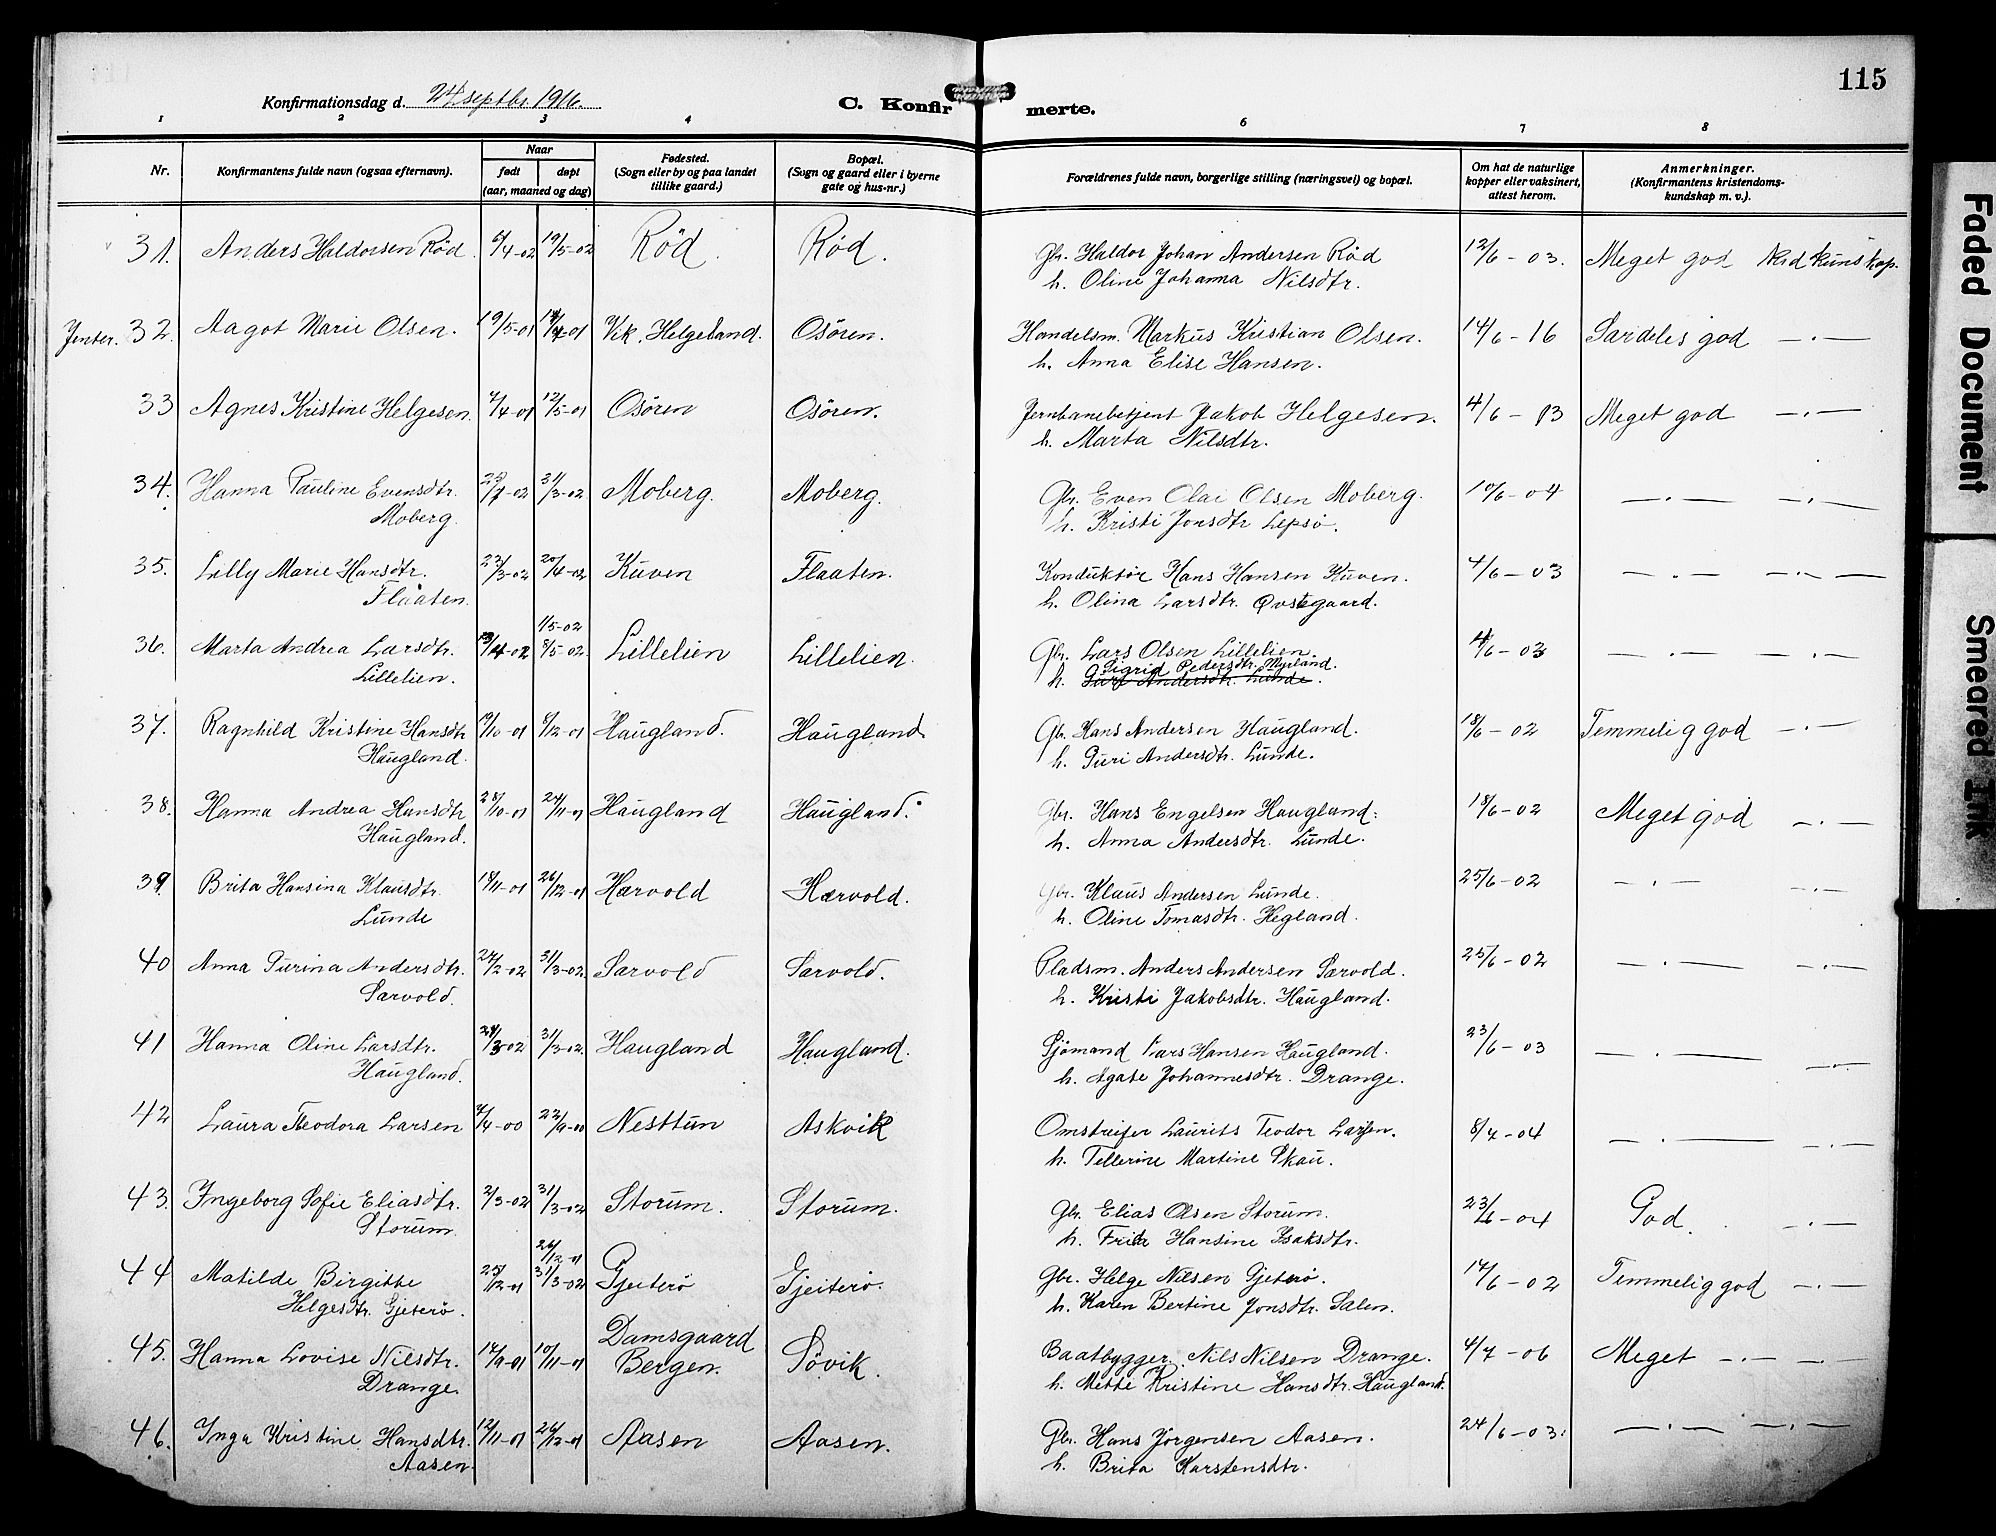 115
Konfirmationsdag d. 24 septbr. 1916.
C. Konfir merte.
1 2 3 4 5 6 7 8
Nr. Konfirmantens fulde navn (ogsaa efternavn). Naar født døpt (aar, maaned og dag) Fødested. (Sogn eller by og paa landet tillike gaard.) Bopæl. (Sogn og gaard eller i byerne gate og hus-nr.) Forældrenes fulde navn, borgerlige stilling (næringsvei) og bopæl. Om hat de naturlige kopper eller vaksinert, attest herom. Anmerkninger. (Konfirmantens kristendoms-kundskap m. v.).
31. Anders Haldorsen Rød 6/4-02 19/5-02 Rød. Rød. Gbr. Haldor Johan Andersen Rød 12/6-03. Meget god kundskap.
h. Oline Johanna Nilsdtr.
Jenter. 32. Aagot Marie Olsen. 19/5-01 Vik, Helgeland. Osören. Handelsm. Markus Kristian Olsen. 14/6-16 Særdeles god —.—
h. Anna Elise Hansen.
33 Agnes Kristine Helgesen 7/4-01 12/5-01 Osören Osören. Jernbanebetjent Jakob Helgesen. 4/6-03 Meget god —.—
h. Marta Nilsdtr.
34. Hanna Pauline Evensdtr. 31/3-02 Moberg. Moberg. Gbr. Even Olai Olsen Moberg. 10/6-04 —.— —.—
Moberg. h. Kristi Jonsdtr Lepsö.
35. Lilly Marie Hansdtr. 23/3-02 20/4-02 Kuven Flaaten. Konduktör Hans Hansen Kuven. 4/6-03 —.— —.—
Flaaten. h. Olina Larsdtr. Øvstegaard.
1/5-02
36. Marta Andrea Larsdtr. 13/4-02 8/5-02 Lillelien Lillelien. Gbr. Lars Olsen Lillelien. 4/6-03 —.— —.—
Lillelien. h. Sigrid Pedersdtr. Myrland.
Guri Andersdtr. Lunde.
37. Ragnhild Kristine Hansdtr 19/10-01 8/12-01 Haugland. Haugland. Gb. Hans Andersen Haugland. 18/6-02 Temmelig god —.—
Haugland. h. Guri Andersdtr. Lunde.
38. Hanna Andrea Hansdtr 28/10-01 24/11-01 Haugland Haugland. Gbr. Hans Engelsen Haugland. 18/6-02 Meget god —.—
Haugland. h. Anna Andersdtr. Lunde.
39 Brita Hansina Klausdtr. 18/11-01 26/12-01 Hærvold Hærvold. Gbr. Klaus Andersen Lunde. 25/6-02 —.— —.—
Lunde h. Oline Tomasdtr. Hegland.
40 Anna Gurina Andersdtr. 27/2-02 31/3-02 Særvold Særvold. Pladsm. Anders Andersen Særvold. 25/6-02 —.— —.—
Særvold. h. Kristi Jakobsdtr. Haugland.
41 Hanna Oline Larsdtr. 31/3-02 Haugland Haugland. Sjömand Lars Hansen Haugland. 23/6-03 —.— —.—
Haugland. h. Agate Johannesdtr. Drange.
42 Laura Teodora Larsen 7/4-00 22/9-00 Nesttun Askvik Omstreifer Laurits Teodor Larsen. 8/7-04 —.— —.—
h. Tellerine Martine Skau.
43. Ingeborg Sofie Eliasdtr. 2/3-02 31/3-02 Storum. Storum. Gbr. Elias Olsen Storum. 23/6-04 God. —.—
Storum h. Hansine Isaksdtr.
26/12-01
44 Matilde Birgitte 25/12-01 31/3-02 Gjeiterö Gjeiterö. Gbr. Helge Nilsen Gjeterö. 14/6-02 Temmelig god —.—
Helgesdtr. Gjeterö. h. Karen Bertine Jonsdtr. Salen.
45. Hanna Lovise Nilsdtr. 17/9-01 10/11-01 Damsgaard Bergen. Sövik. Baatbygger. Nils Nilsen Drange. 4/7-06 Meget —.— —.—
Drange. h. Mette Kristine Hansdtr. Haugland.
46. Inga Kristine Hansdtr. 12/11-01 26/12-01 Aasen Aasen. Gbr. Hans Jörgensen Aasen. 24/6-03. —.— —.—
Aasen. h. Brita Karstensdtr.
Faded Document
Smeared Ink